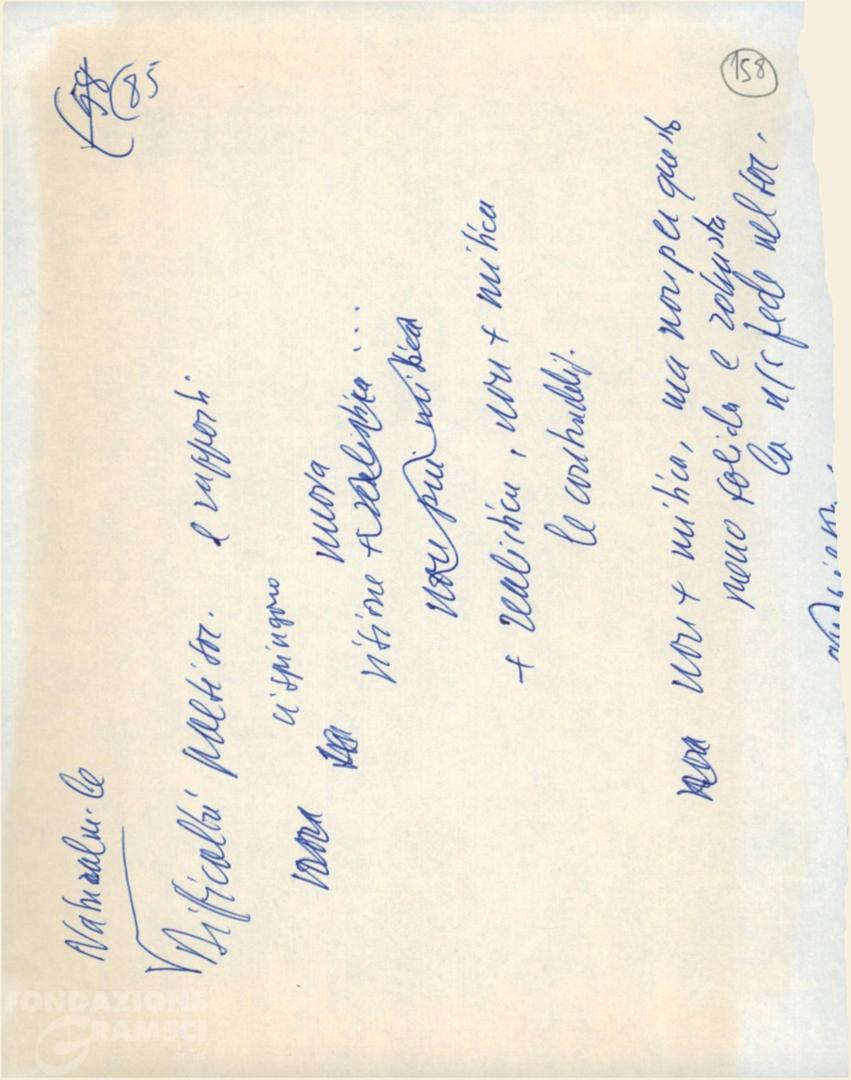 158
85
Naturalm. le
Difficoltà paesi soc. e rapporti
ci spingono
nuova
visione + realistica ...
non più mitica
+ realistica, non + mitica
le contraddiz.
non + mitica, ma non per questo
meno solida e robusta
la ns fede nel soc.
FONDAZIONE
GRAMSCI